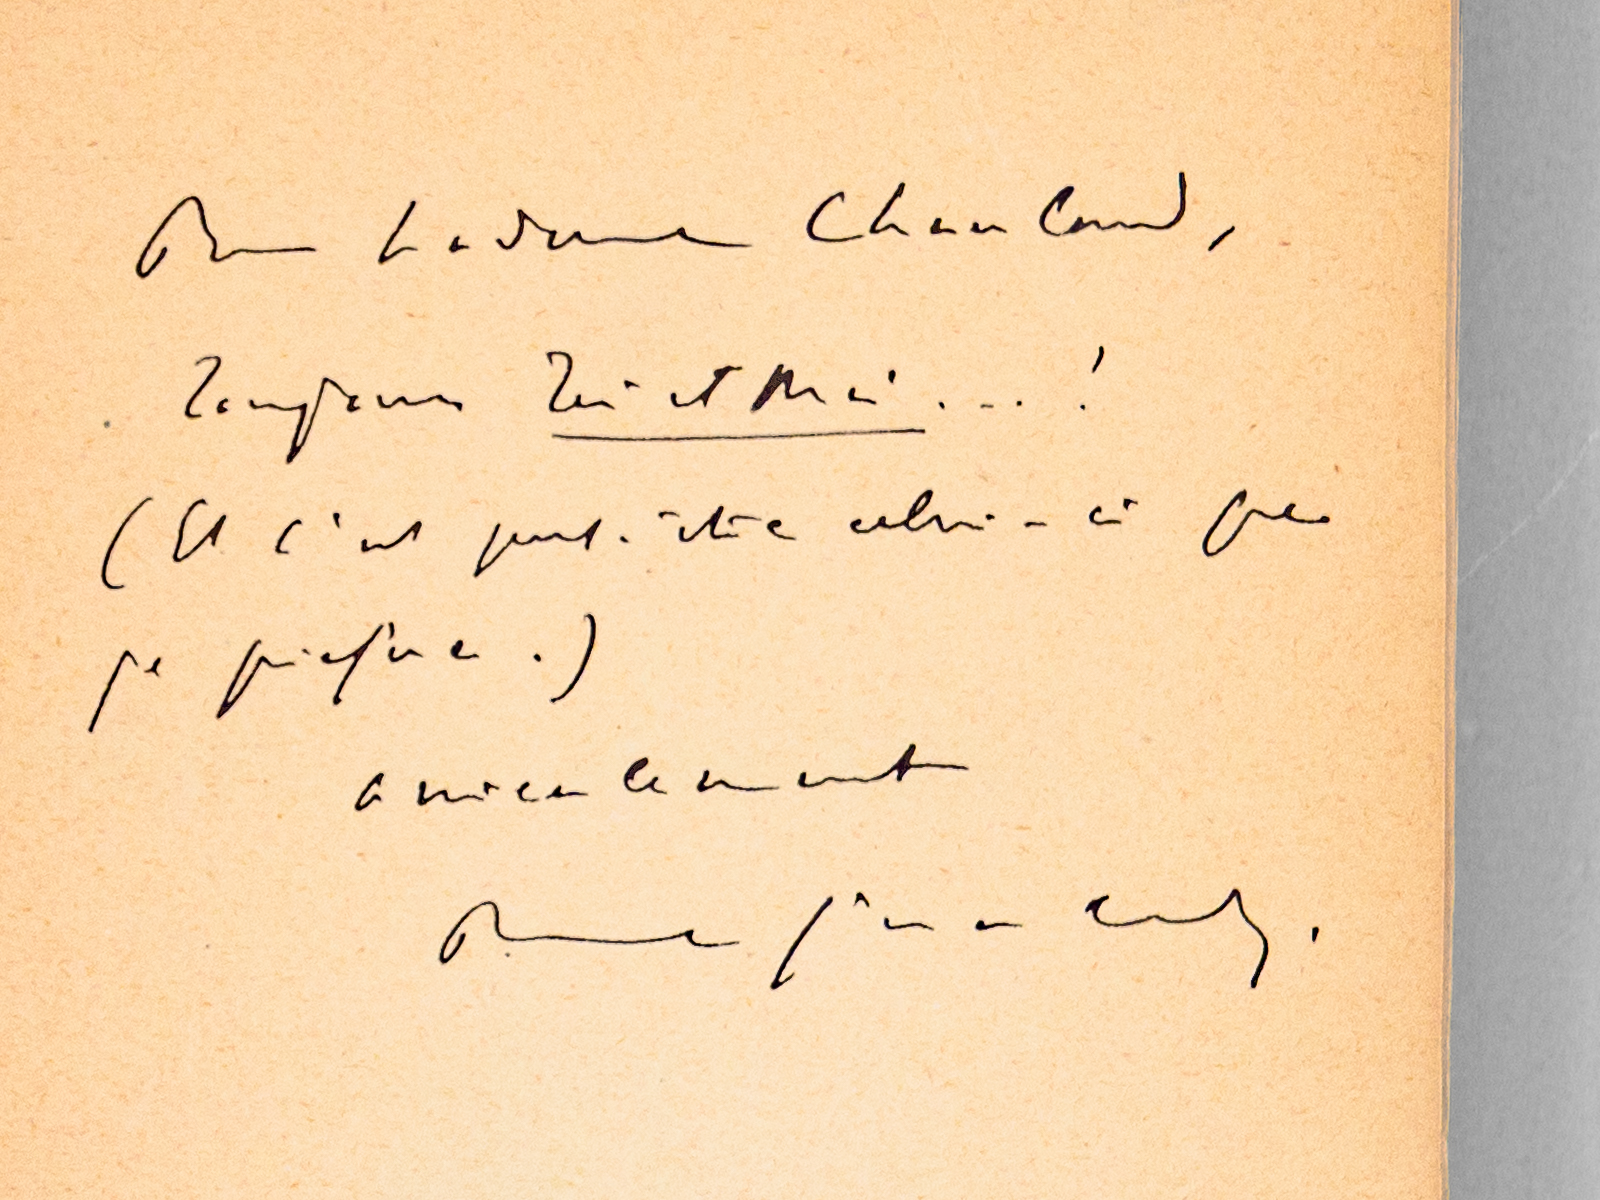 Pour Madame
Toujours Toi et Moi . . . !
(Et c'est peut-être celui-ci que
je préfère.)
amicalement
Paul Géraldy.